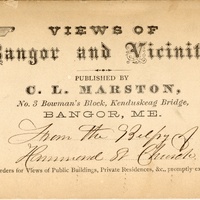 VIEWS OF
Bangor and Vicinit
PUBLISHED BY
C. L. MARSTON,
No. 3 Bowman's Block, Kenduskeag Bridge,
BANGOR, ME.
From the Belfry of
Hammond St Church
rders for Views of Public Buildings, Private Residences, &c., promptly ex